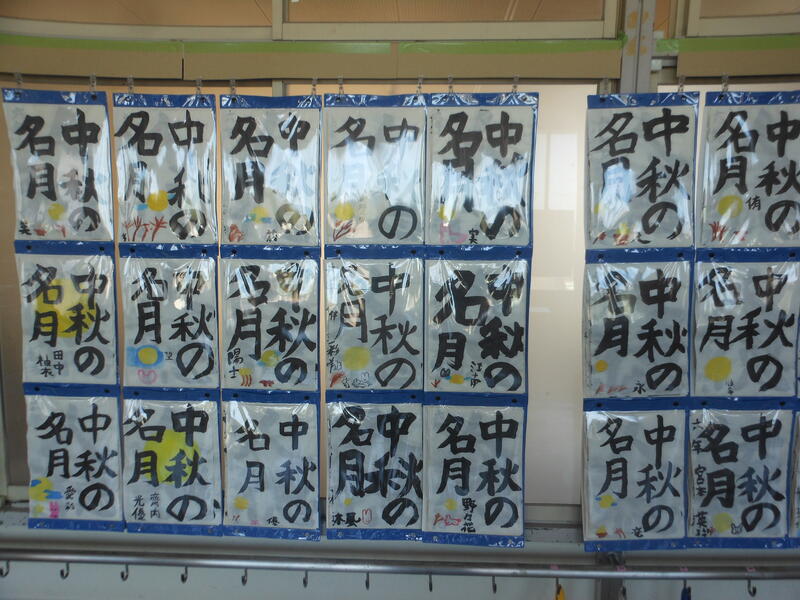 中秋の
名月
美
中秋の
名月
中秋の
名月
中秋の
名月
中秋の
名月
実
中秋の
名月
中秋の
名月
侑
中秋の
名月
田中
柚木
中秋の
名月
望
中秋の
名月
陽士
中秋の
名月
中秋の
名月
中秋の
名月
永
中秋の
名月
中秋の
名月
中秋の
名月
光優
中秋の
名月
優
中秋の
名月
中秋の
名月
野々花
中秋の
名月
中秋の
名月
六年
宮本